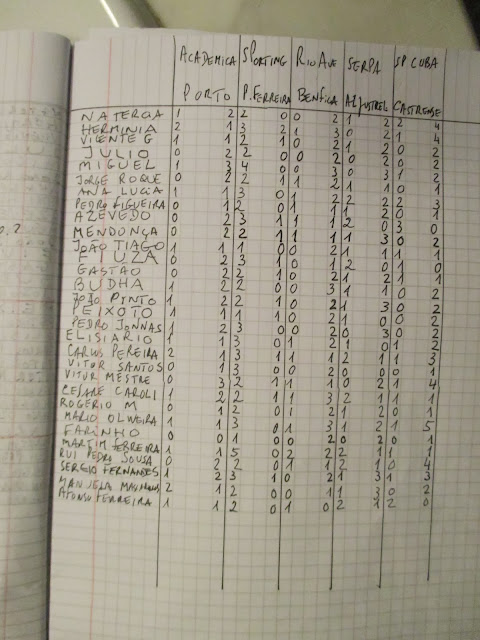 ACADEMICA SPORTING RIO AVE SERPA SP CUBA
PORTO P. FERREIRA BENFICA ALJUSTREL CASTRENSE
NATERCIA 1 2 2 0 0 2 1 2 2 4
HERMINIA 2 1 3 2 1 3 0 2 1 4
VICENTE G 1 1 2 1 0 2 1 2 0 2
JULIO 0 2 2 0 0 2 0 2 0 2
MIGUEL 0 3 4 0 0 3 0 3 1 2
JORGE ROQUE 0 2 2 1 1 2 1 1 0 1
ANA LUCIA 1 1 3 0 1 2 2 2 2 3
PEDRO FIGUEIRA 0 1 2 0 0 1 1 2 0 1
AZEVEDO 0 2 3 1 1 1 2 0 3 0
MENDONÇA 0 2 2 1 1 1 1 3 0 2
JOÃO TIAGO 1 1 1 0 0 2 1 1 1 1
FIUZA 0 2 3 1 0 1 2 0 1 0
GASTÃO 0 2 2 0 1 2 1 2 1 1
BUDHA 1 2 2 1 0 3 1 1 0 2
JOÃO PINTO 1 2 2 1 0 2 1 3 0 2
PEIXOTO 1 1 1 1 0 2 1 0 0 2
PEDRO JONNAS 1 2 3 0 0 2 0 3 0 2
ELISIARIO 1 1 3 0 1 2 1 0 1 2
CARLOS PEREIRA 2 1 3 1 1 1 2 1 1 3
VITOR SANTOS 0 1 3 0 0 2 0 2 0 1
VITOR MESTRE 0 3 2 1 1 1 0 2 1 4
CESARE CAROLI 1 2 2 1 1 3 2 1 1 1
ROGERIO M 0 1 2 0 1 2 1 2 0 1
MARIO OLIVEIRA 1 1 3 0 1 3 1 2 1 5
FARINHO 0 0 1 0 0 2 0 2 0 1
MARTIM FERREIRA 1 1 5 0 2 2 2 1 1 1
RUI PEDRO SOUSA 0 2 2 0 1 1 2 1 0 4
SERGIO FERNANDES 1 2 3 1 0 2 1 3 1 3
MANUELA 2 1 2 0 0 1 1 3 0 2
AFONSO FERREIRA 1 1 2 0 1 0 2 1 2 0